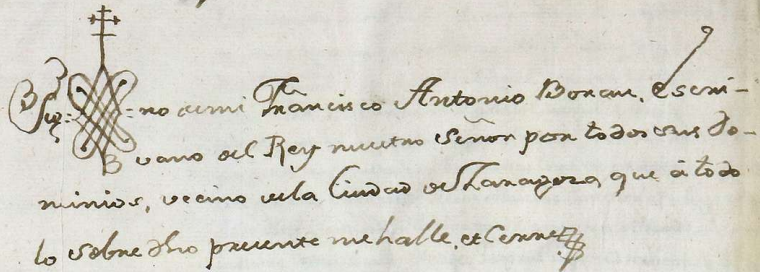 Sig-no de mi Francisco Antonio Borau, Escri-
vano del Rey nuestro Señor por todos sus Do-
minios, vecino de la Ciudad de Zaragoza, que à todo
lo sobre dho presente me halle, et Cerre